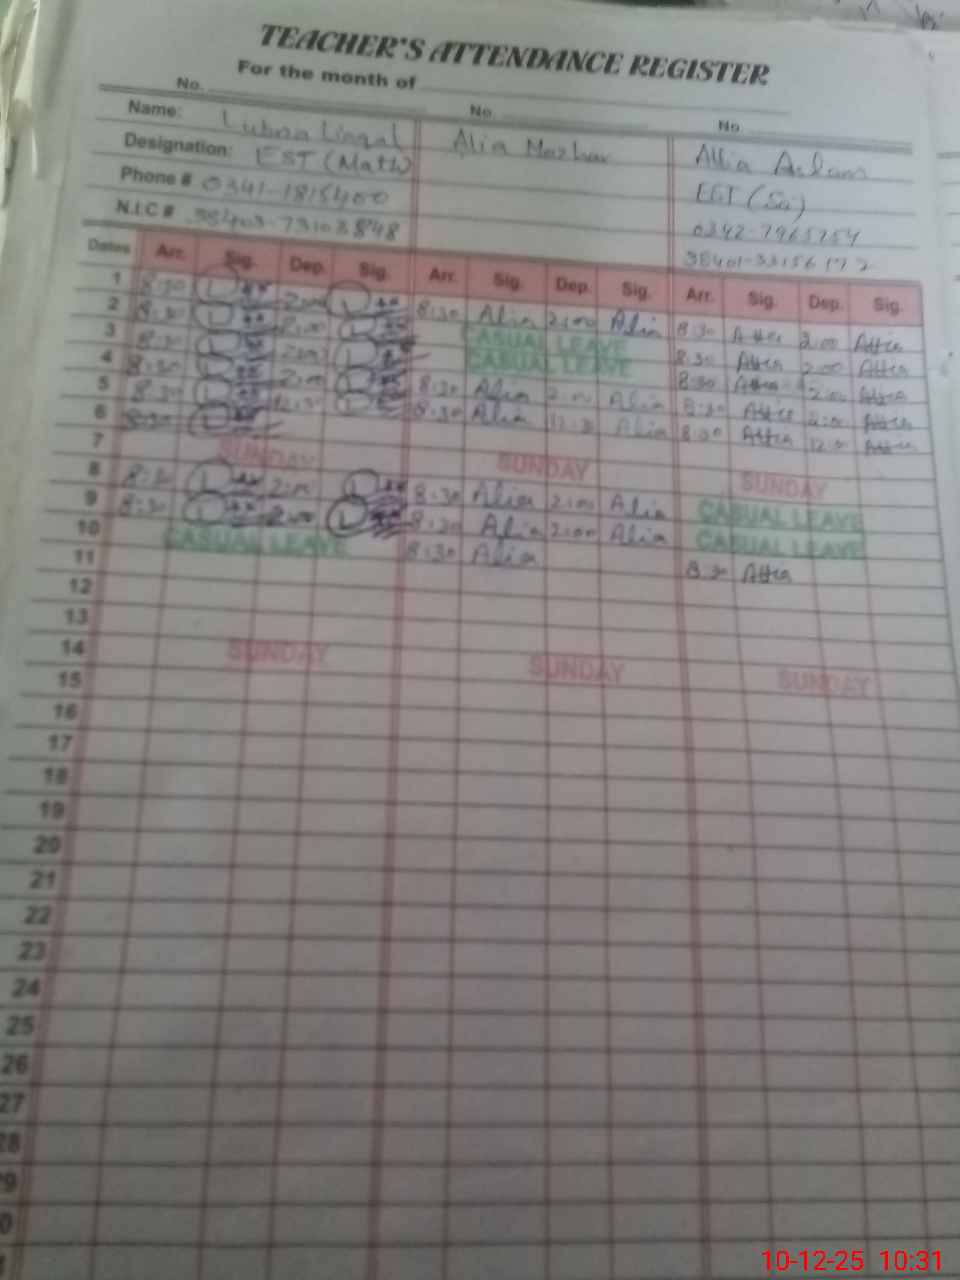 TEACHER'S ATTENDANCE REGISTER
For the month of
No. No. No.
Name: Lubna Liaqal Alia Mazhar Attia Aslam
Designation: EST (Math) EST (Sci)
Phone # 0341-1815400
N.I.C #
Dates Arr. Sig. Dep. Sig. Arr. Sig. Dep. Sig. Arr. Sig. Dep. Sig.
1 8:30 2:00 8:30 Alia 2:00 Alia 8:30 Attia 2:00 Attia
2 8:30 2:00 CASUAL LEAVE 8:30 Attia 2:00 Attia
3 8:30 2:00 CASUAL LEAVE 8:30 Attia 2:00 Attia
4 8:30 2:00 8:30 Alia 2:00 Alia 8:30 Attia 2:00 Attia
5 8:30 12:30 8:30 Alia 12:30 Alia 8:30 Attia Attia
6 8:30
7 SUNDAY SUNDAY SUNDAY
8 8:30 2:00 8:30 Alia 2:00 Alia CASUAL LEAVE
9 8:30 2:00 8:30 Alia 2:00 Alia CASUAL LEAVE
10 CASUAL LEAVE 8:30 Alia 8:30 Attia
11
12
13
14 SUNDAY SUNDAY SUNDAY
15
16
17
18
19
20
21
22
23
24
25
26
27
28
10-12-25 10:31